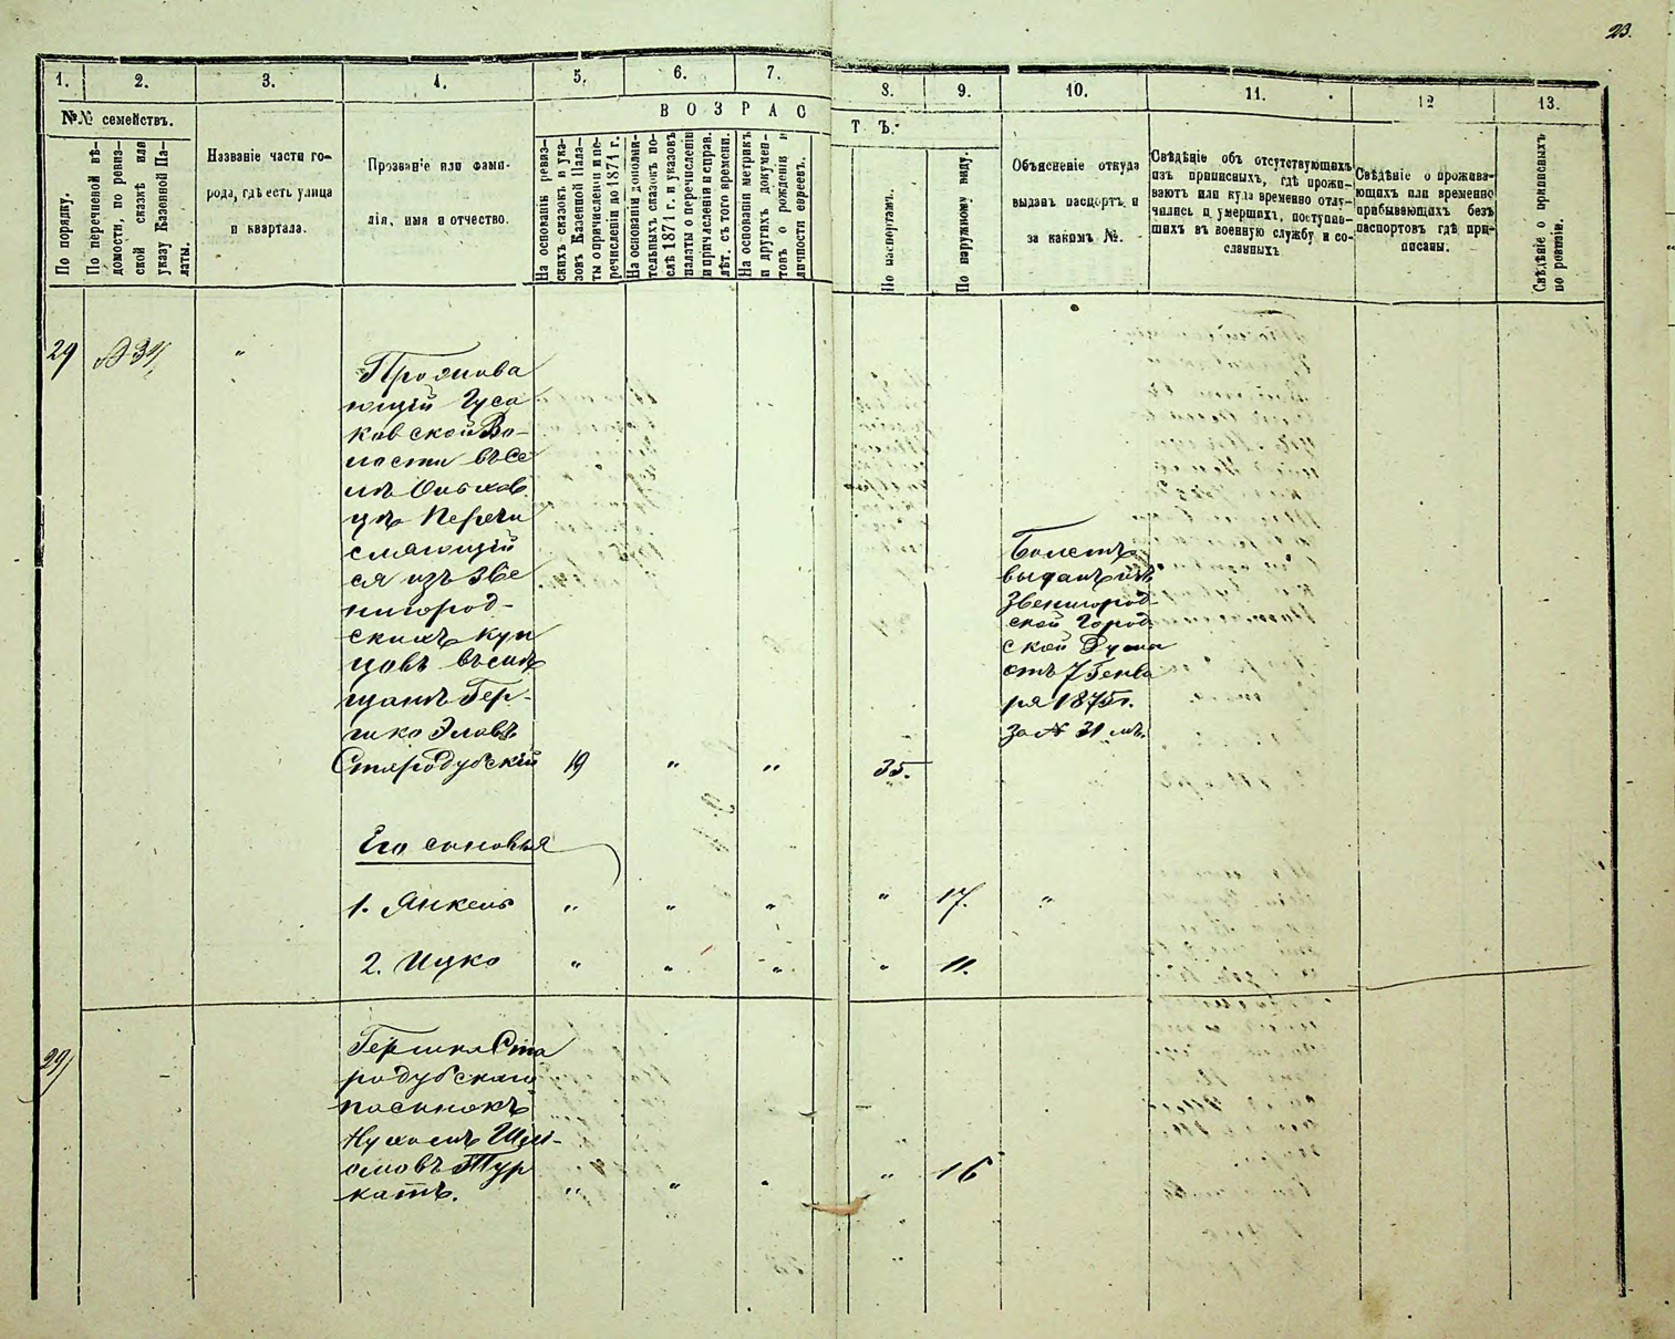 23.
1.
2.
3.
4.
5.
6.
7.
8.
9.
10.
11.
12
13.
№№ семействъ.
По порядку.
По перечневой вѣ-
домости, по ревиз-
ской сказкѣ или
указу Казенной Па-
латы.
Названіе части го-
рода, гдѣ есть улица
и квартала.
Прозваніе или фами-
лія, имя и отчество.
ВОЗРАС
ТЪ.
На основаніи ревиз-
скихъ сказокъ и ука-
зовъ Казенной Пала-
ты о причисленіи и пе-
речисленіи до 1871 г.
На основаніи дополни-
тельныхъ сказокъ по-
слѣ 1871 г. и указовъ
палаты о перечисленіи
и причисленіи и справ.
лѣт. съ того времени.
На основаніи метрикъ
и другихъ докумен-
товъ о рожденіи и
личности евреевъ.
По паспортамъ.
По наружному виду.
Объясненіе откуда
выданъ паспортъ и
за какимъ №.
Свѣдѣніе объ отсутствующихъ
изъ приписныхъ, гдѣ прожи-
ваютъ или куда временно отлу-
чились и умершихъ, поступив-
шихъ въ военную службу и со-
сланныхъ
Свѣдѣніе о прожива-
ющихъ или временно
прибывающихъ безъ
паспортовъ гдѣ при-
писаны.
Свѣдѣніе о приписныхъ
по ревизіи.
29 "
Прожива
ющій Гуса
ковской Во-
лости въ Се
лѣ Ольхов
цѣ Перечи
сляющій
ся изъ Зве
нигород-
скихъ куп
цовъ въ мѣ
щанъ Гер-
шко Эловъ
Стародубскій 19 " " 35.
Билетъ
выданъ изъ
Звенигород-
ской Город
ской Думы
отъ 7 Генва
ря 1875 г.
за № 31 мъ.
Его сыновья
1. Янкель " " " " 17. "
2. Ицко " " " " 11.
29
Гершка Ста
родубскаго
пасынокъ
Нухимъ Шлі-
омовъ Тур
катъ. " " " " 16